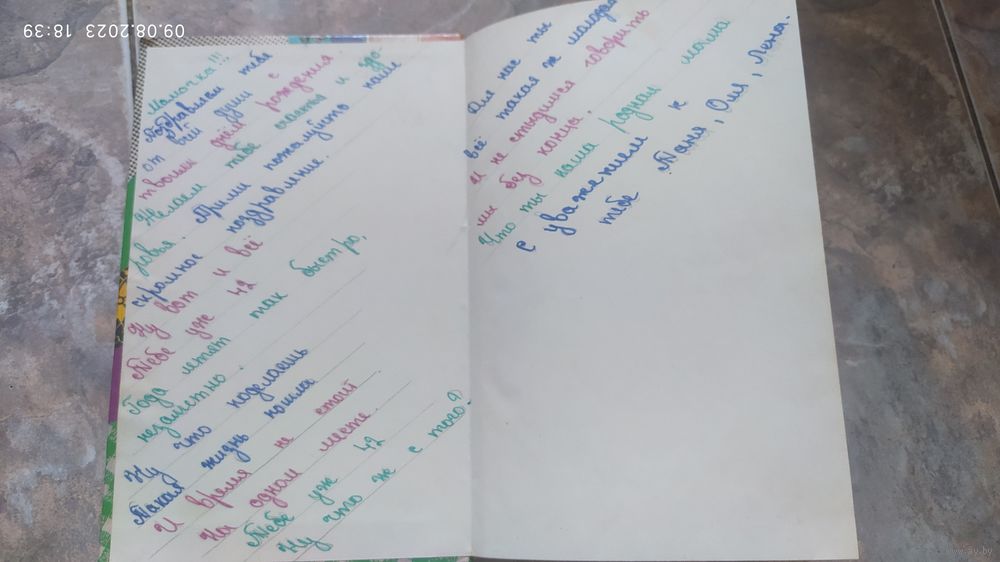 09.08.2023 18:39
Мамочка!!!
Поздравляем тебя
от всей души с
твоим днём рождения
Желаем тебе счастья и здо-
ровья. Прими пожалуйсто наше
скромное поздравление.
Ну вот и всё
Тебе уже 42
Года летят так быстро,
незаметно.
Ну что поделаешь
Такая жизнь пошла
И время не стоит
На одном месте.
Тебе уже 42
Ну что же с того?
Для нас ты
всё такая ж молодая
И не стыдимся говорить
мы бу конца,
Что ты наша родная мама
с уважением к
тебе Таня, Оля, Лена.
www.ay.by